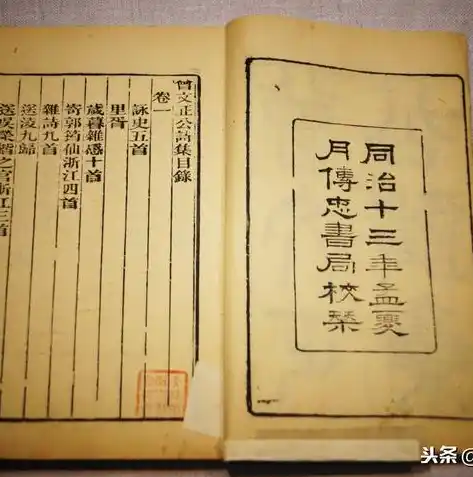 同治十三年孟夏
月傳忠書局校栞
曾文正公詩集目錄
卷一
詠史五首
里胥
歲暮雜感十首
寄郭筠仙浙江四首
雜詩九首
送凌九歸
送吳榮楷之官浙江三首
头条@